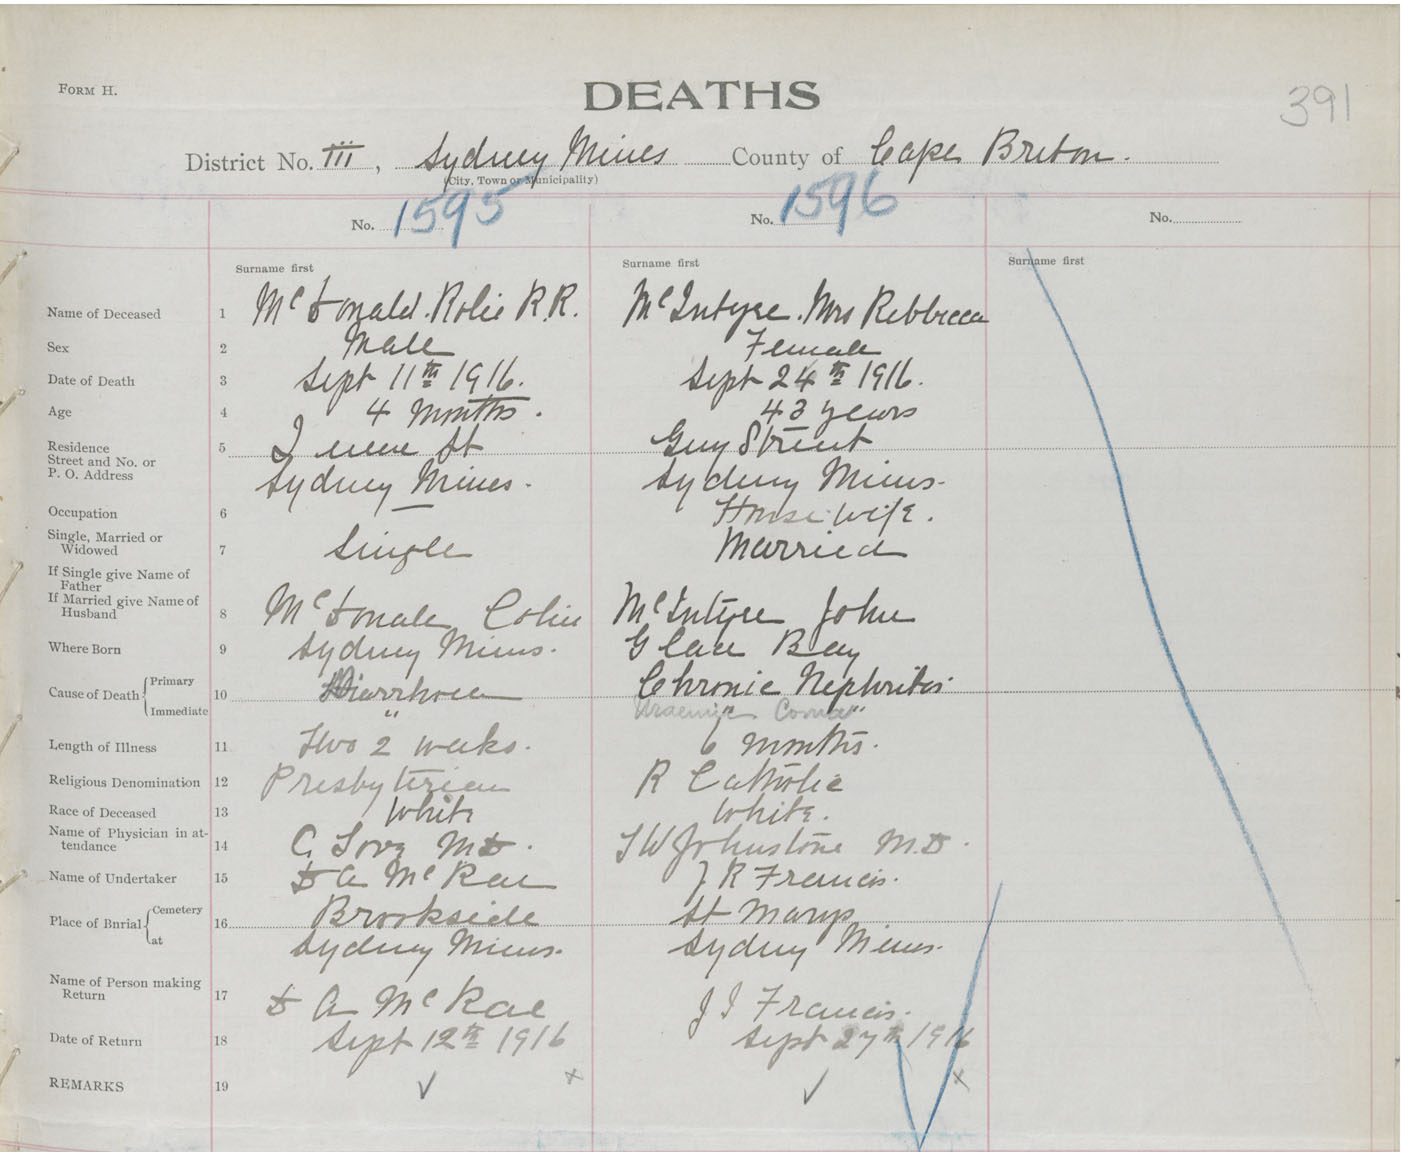 FORM H.
DEATHS
391
District No. III, Sydney Mines County of Cape Breton.
(City, Town or Municipality)
No. 1595
No. 1596
No.
Surname first
Surname first
Surname first
Name of Deceased 1 McDonald. Rolie R.R. McIntyre. Mrs Rebbecca
Sex 2 Male Female
Date of Death 3 Sept 11th 1916. Sept 24th 1916.
Age 4 4 months. 43 years
Residence 5 St Guy Street
Street and No. or
P. O. Address Sydney Mines. Sydney Mines.
Occupation 6 — House wife.
Single, Married or
Widowed 7 Single Married
If Single give Name of
Father
If Married give Name of
Husband 8 McDonald Colin McIntyre John
Where Born 9 Sydney Mines. Glace Bay
Cause of Death Primary 10 Diarrhoea Chronic Nephritis.
Immediate " Uraemic Coma "
Length of Illness 11 Two 2 weeks. 6 months.
Religious Denomination 12 Presbyterian R Catholic
Race of Deceased 13 White White.
Name of Physician in at-
tendance 14 MD. TW Johnstone M.D.
Name of Undertaker 15 D A McRae J R Francis.
Place of Burial Cemetery 16 Brookside St Marys
at Sydney Mines. Sydney Mines.
Name of Person making
Return 17 D A McRae J J Francis.
Date of Return 18 Sept 12th 1916 Sept 27th 1916
REMARKS 19 ✓ x ✓ x